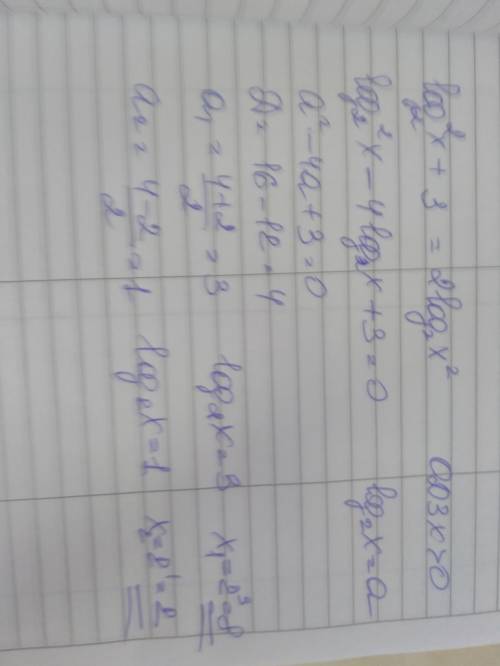 log₂²x + 3 = 2log₂x² ОДЗ x>0
log₂²x - 4log₂x + 3 = 0 log₂x = a
a² - 4a + 3 = 0
D = 16 - 12 = 4
a₁ = (4+2)/2 = 3 log₂x = 3 x₁ = 2³ = 8
a₂ = (4-2)/2 = 1 log₂x = 1 x₂ = 2¹ = 2